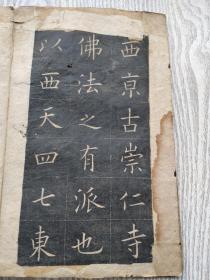 西京古崇仁寺
佛法之有派也
以西天四七東